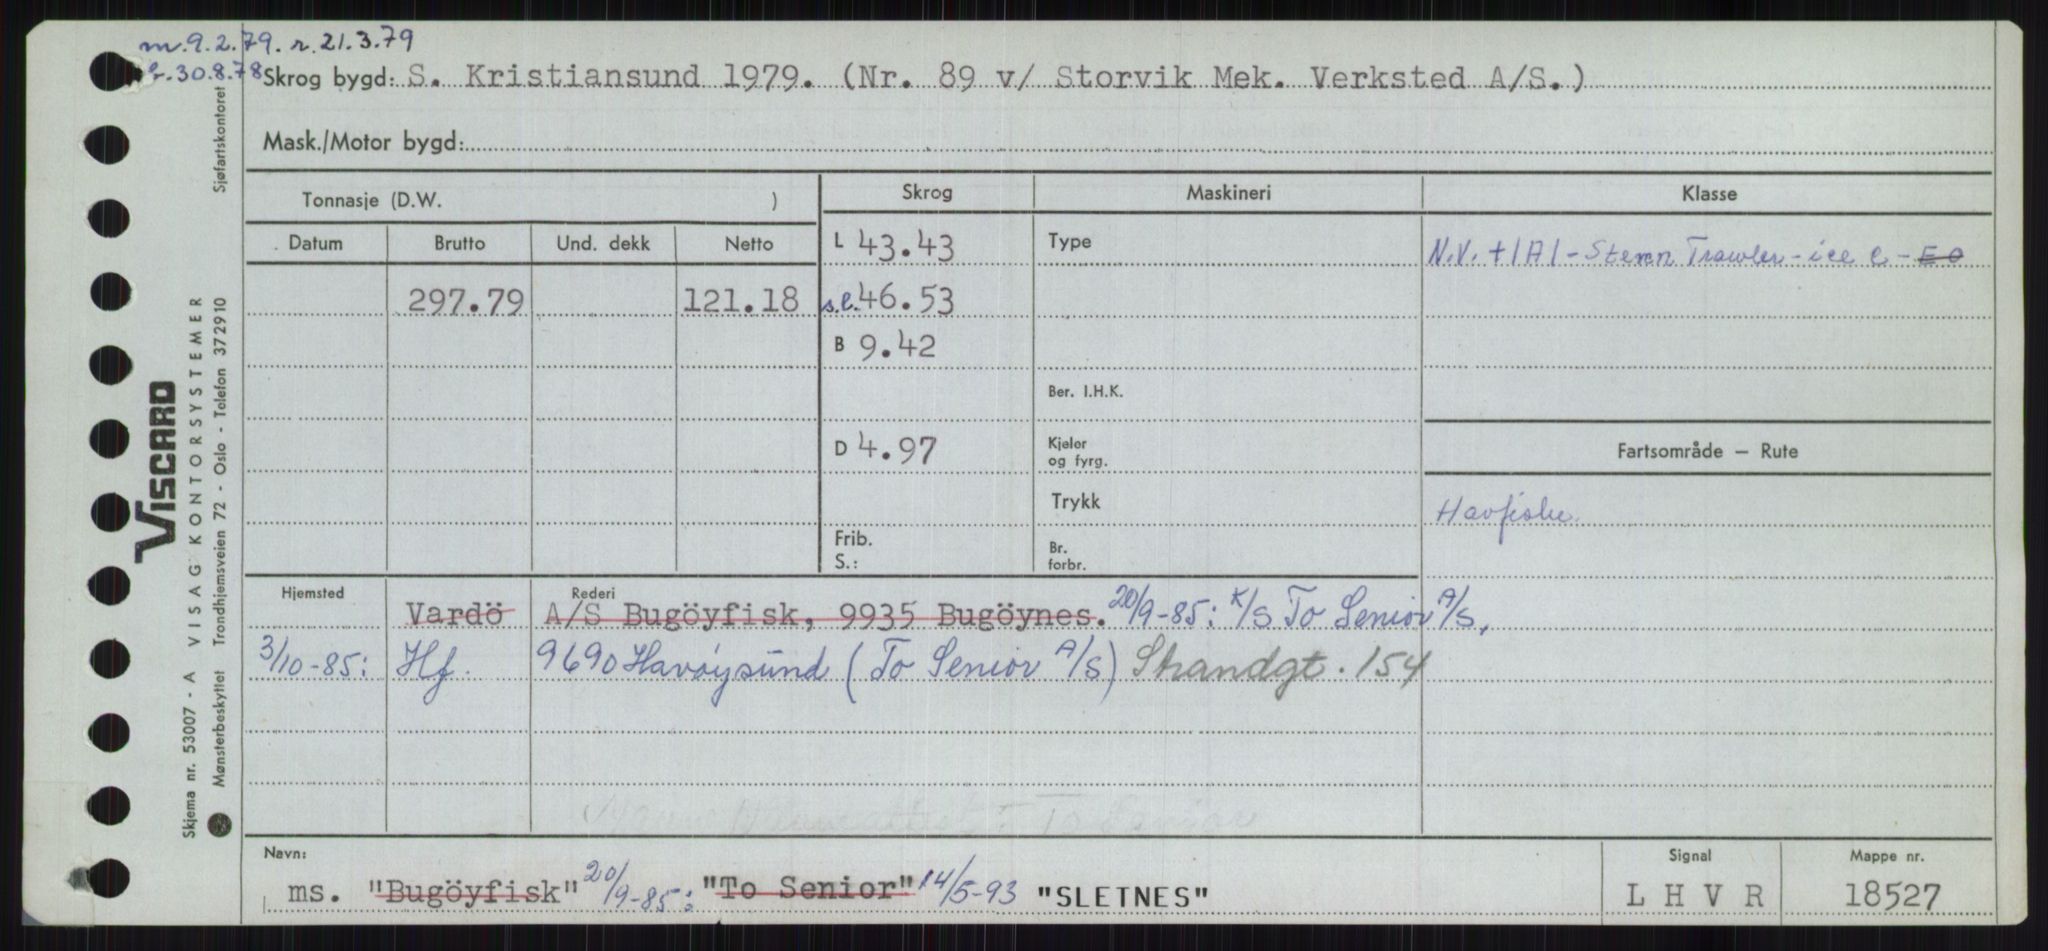 m.9.2.79. r.21.3.79
30.8.78
Skrog bygd: S. Kristiansund 1979. (Nr. 89 v/ Storvik Mek. Verksted A/S.)
Mask./Motor bygd:
Tonnasje (D.W. )
Skrog
Maskineri
Klasse
Datum
Brutto
Und. dekk
Netto
L 43.43
Type
N.V. +1A1-Stern Trawler-ice C-E0
297.79
121.18
s.l. 46.53
B 9.42
Ber. I.H.K.
D 4.97
Kjeler
og fyrg.
Fartsområde – Rute
Trykk
Havfiske
Frib.
S.:
Br.
forbr.
Hjemsted
Rederi
Vardö
A/S Bugöyfisk, 9935 Bugöynes. 20/9-85: K/S To Senior A/S,
3/10-85:
Hf.
9690 Havöysund (To Senior A/S) Strandgt. 154
To Senior
Navn:
Signal
Mappe nr.
ms. "Bugöyfisk" 20/9-85: "To Senior" 14/5-93 "SLETNES"
L H V R
18527
VISCARD
Skjema nr. 53007 - A VISAG KONTORSYSTEMER
Mønsterbeskyttet Trondhjemsveien 72 - Oslo - Telefon 372910
Sjøfartskontoret